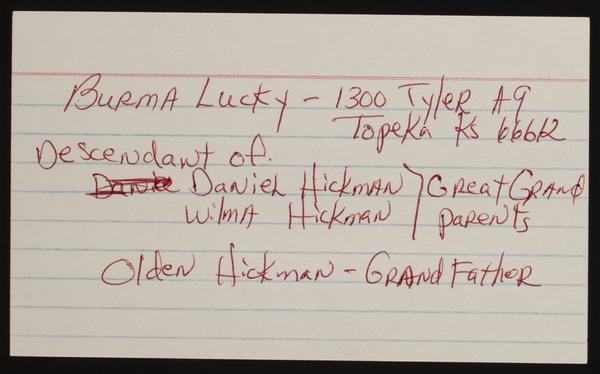 Burma Lucky - 1300 Tyler A9
Topeka Ks 66612
Descendant of.
Daniel Hickman ) Great Grand
Wilma Hickman parents
Olden Hickman - Grand Father